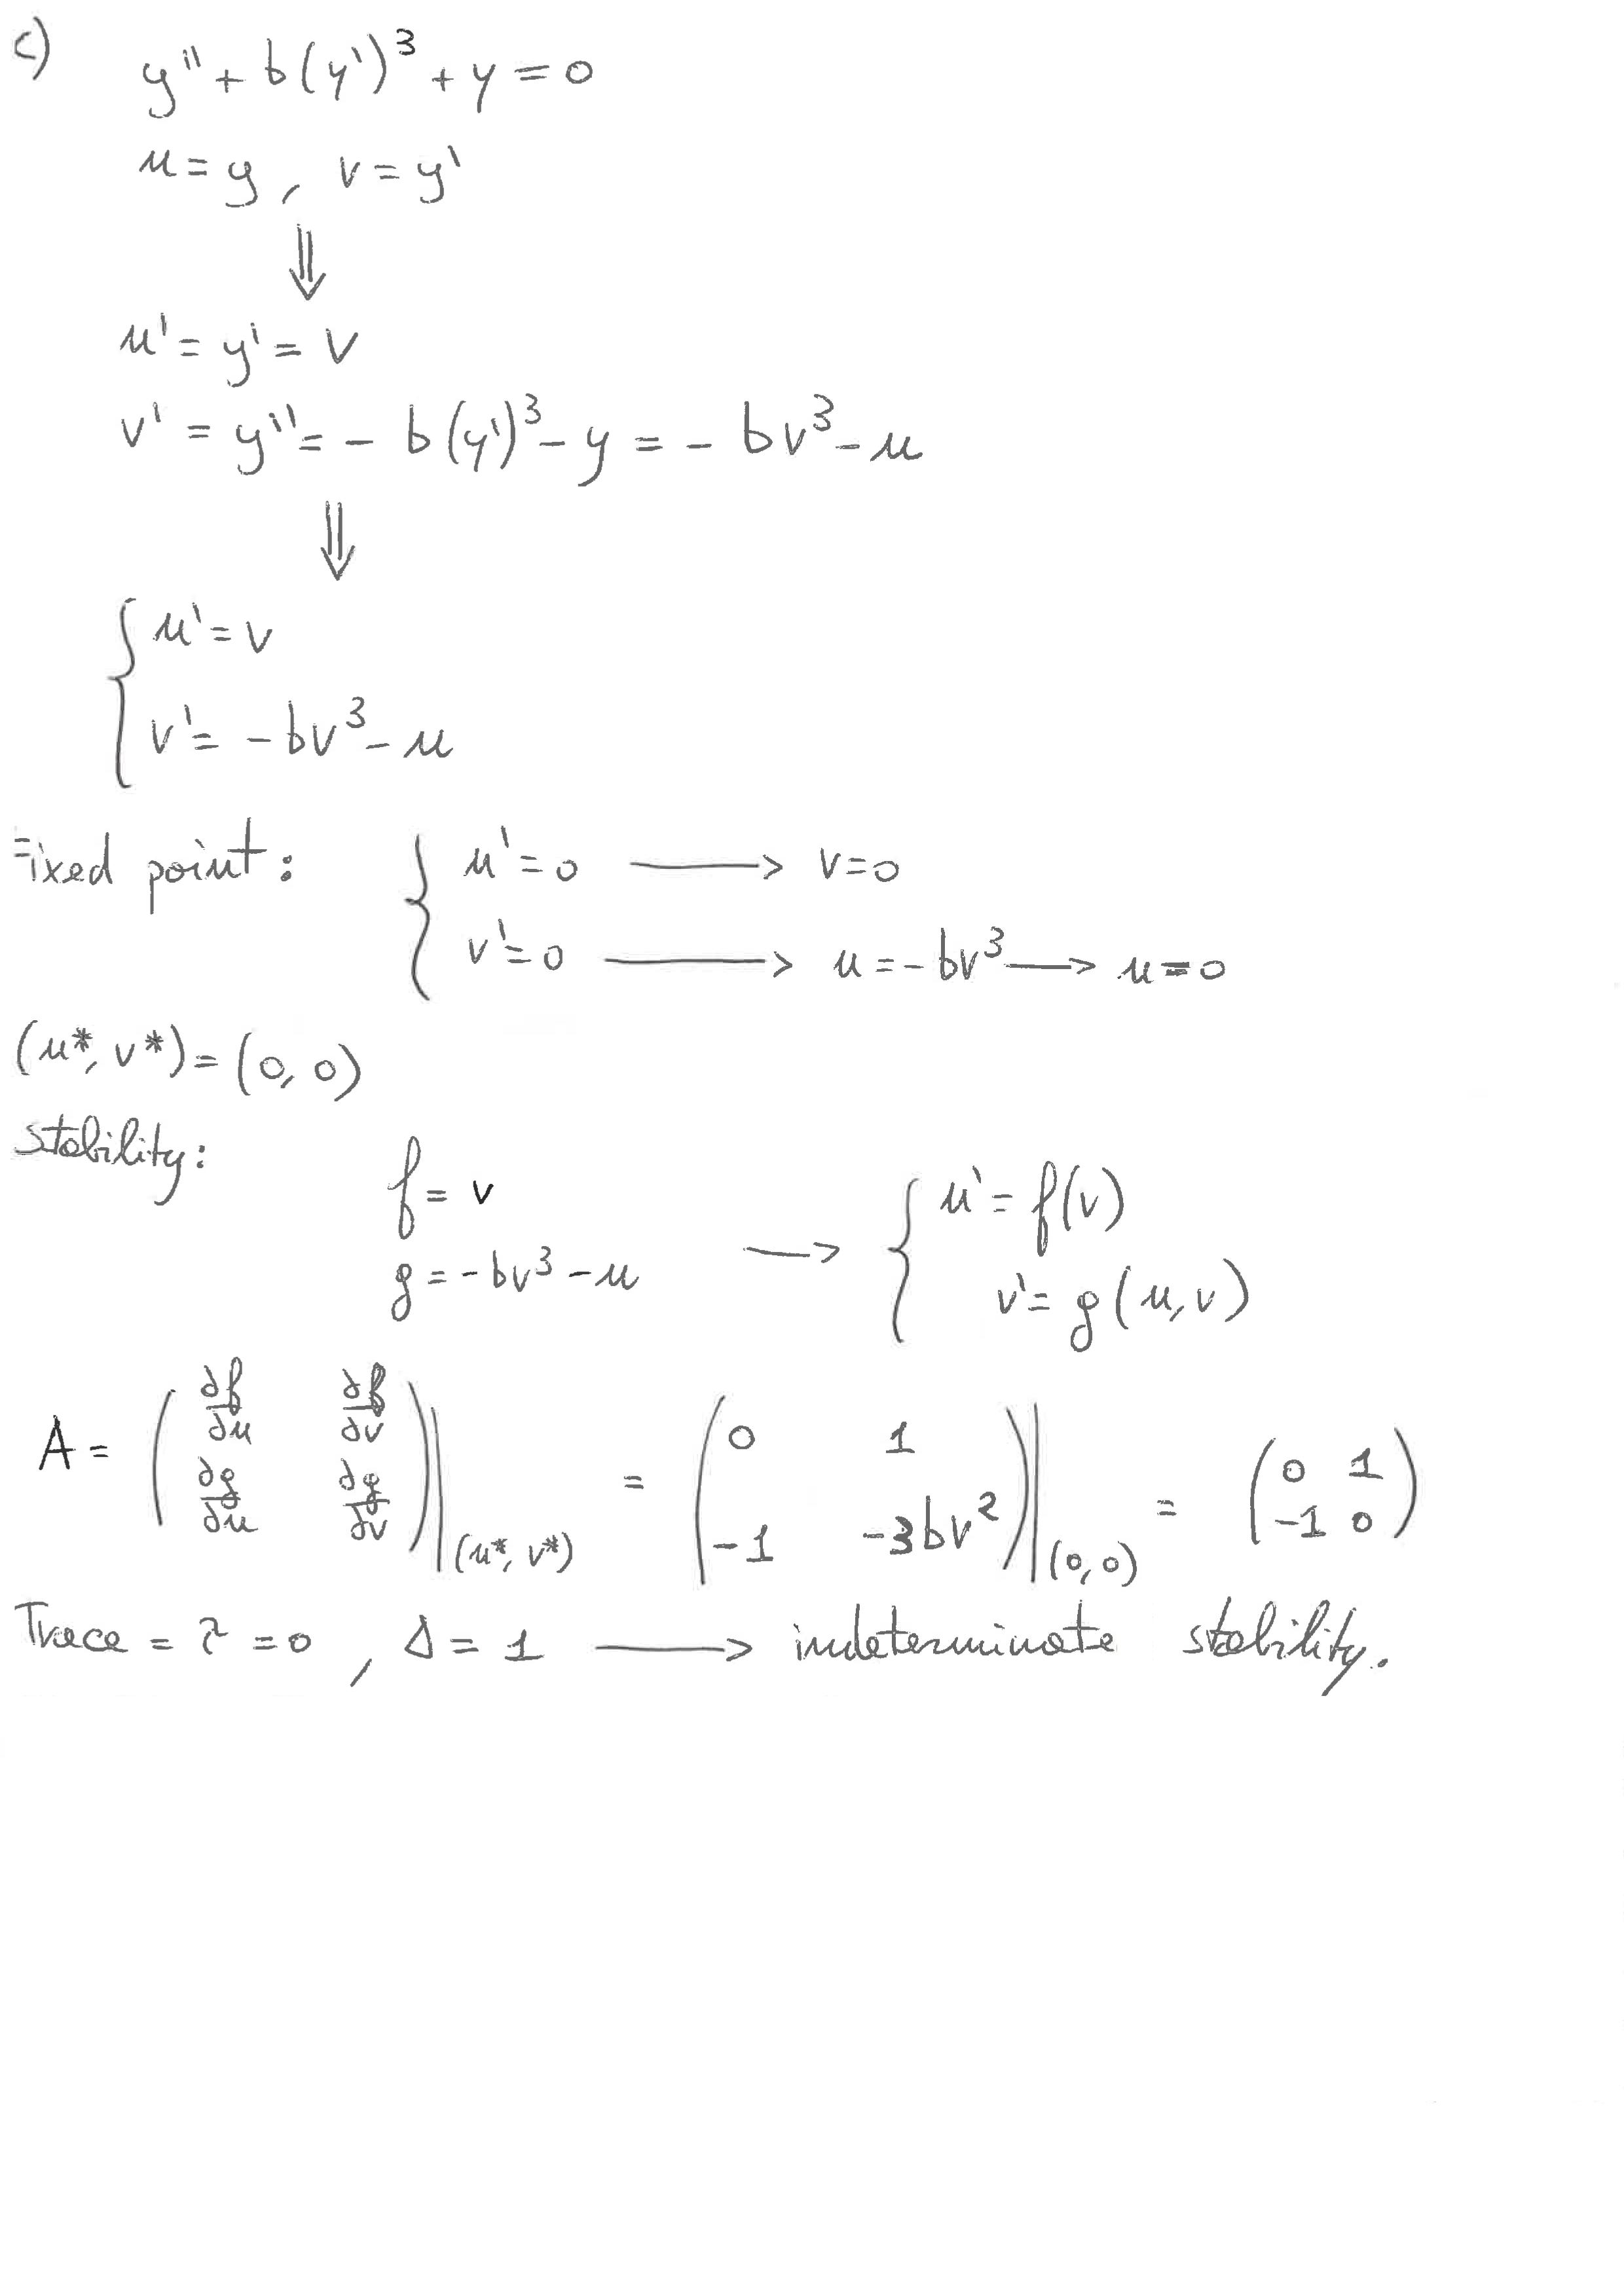 c)
y'' + b(y')³ + y = 0
u = y, v = y'
⇓
u' = y' = v
v' = y'' = - b(y')³ - y = - bv³ - u
⇓
{ u' = v
v' = - bv³ - u
Fixed point: { u' = 0 ⟶ v = 0
v' = 0 ⟶ u = - bv³ ⟶ u = 0
(u*, v*) = (0, 0)
stability:
f = v
g = - bv³ - u ⟶ { u' = f(v)
v' = g(u, v)
A = ( ∂f/∂u ∂f/∂v ; ∂g/∂u ∂g/∂v )|(u*, v*) = ( 0 1 ; -1 -3bv² )|(0, 0) = ( 0 1 ; -1 0 )
Trace = τ = 0, Δ = 1 ⟶ indeterminate stability.